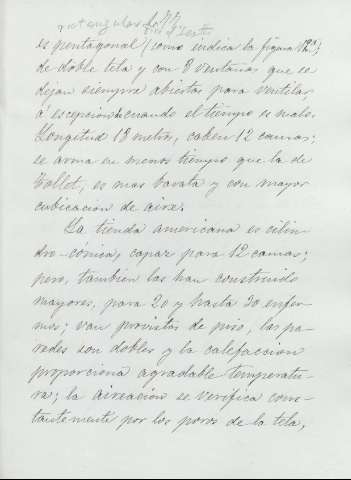 rectangular
es pentagonal (como indica la figura 12ª);
de doble tela y con 8 ventanas que se
dejan siempre abiertas para ventilar
á escepción cuando el tiempo es malo.
Longitud 13 metros, caben 12 camas;
se arma en menos tiempo que la de
Tollet, es mas barata y con mayor
cubicación de aire.
La tienda americana es cilin-
dro-cónica, capaz para 12 camas;
pero, tambien las han construido
mayores, para 20 y hasta 30 enfer-
mos; van provistas de piso, las pa-
redes son dobles y la calefaccion
proporciona agradable temperatu-
ra; la aireación se verifica cons-
tantemente por los poros de la tela,